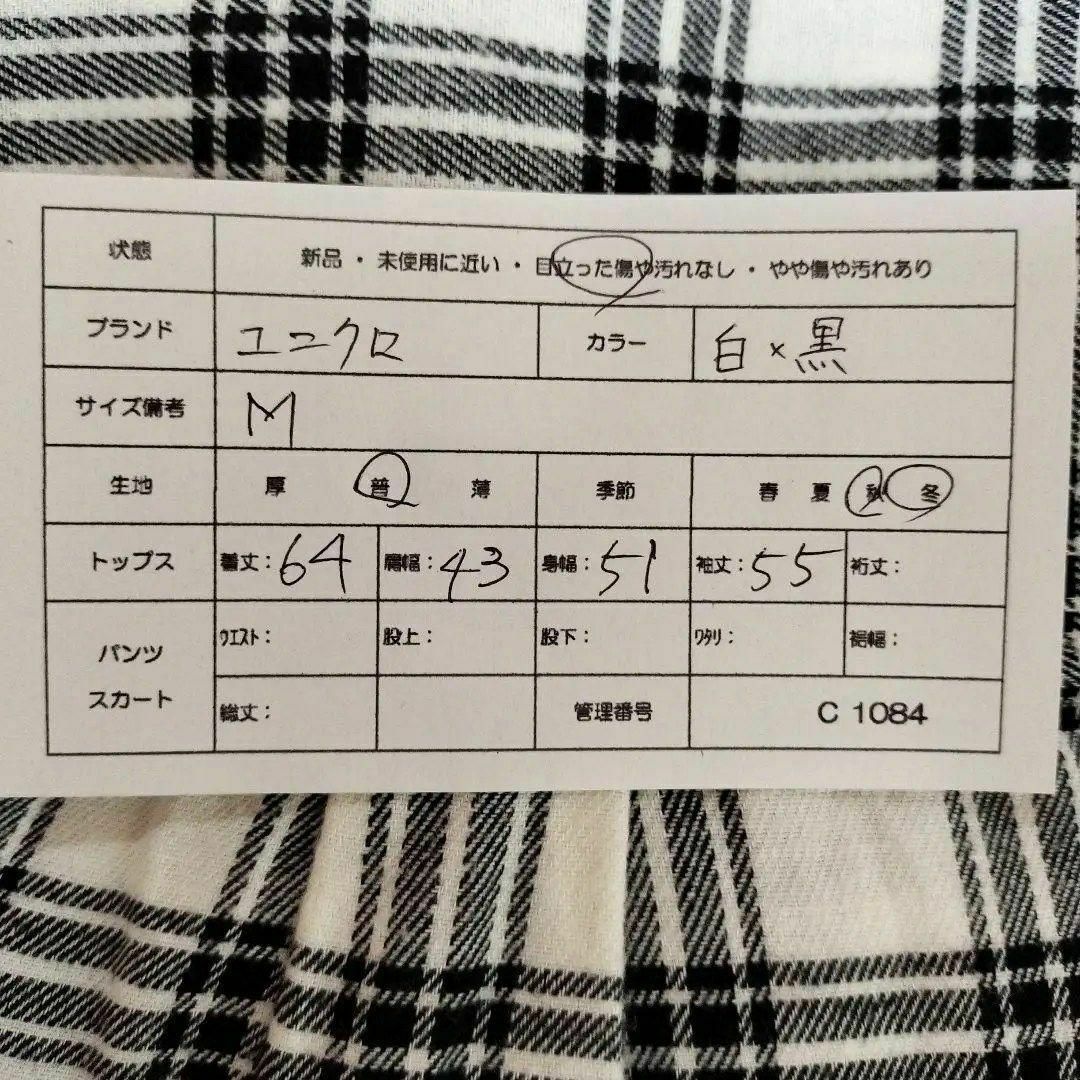 状態 新品・未使用に近い・目立った傷や汚れなし・やや傷や汚れあり
ブランド ユニクロ カラー 白×黒
サイズ備考 M
生地 厚 普 薄 季節 春 夏 秋 冬
トップス 着丈：64 肩幅：43 身幅：51 袖丈：55 裄丈：
パンツ スカート ｳｴｽﾄ： 股上： 股下： ﾜﾀﾘ： 裾幅：
総丈： 管理番号 C 1084